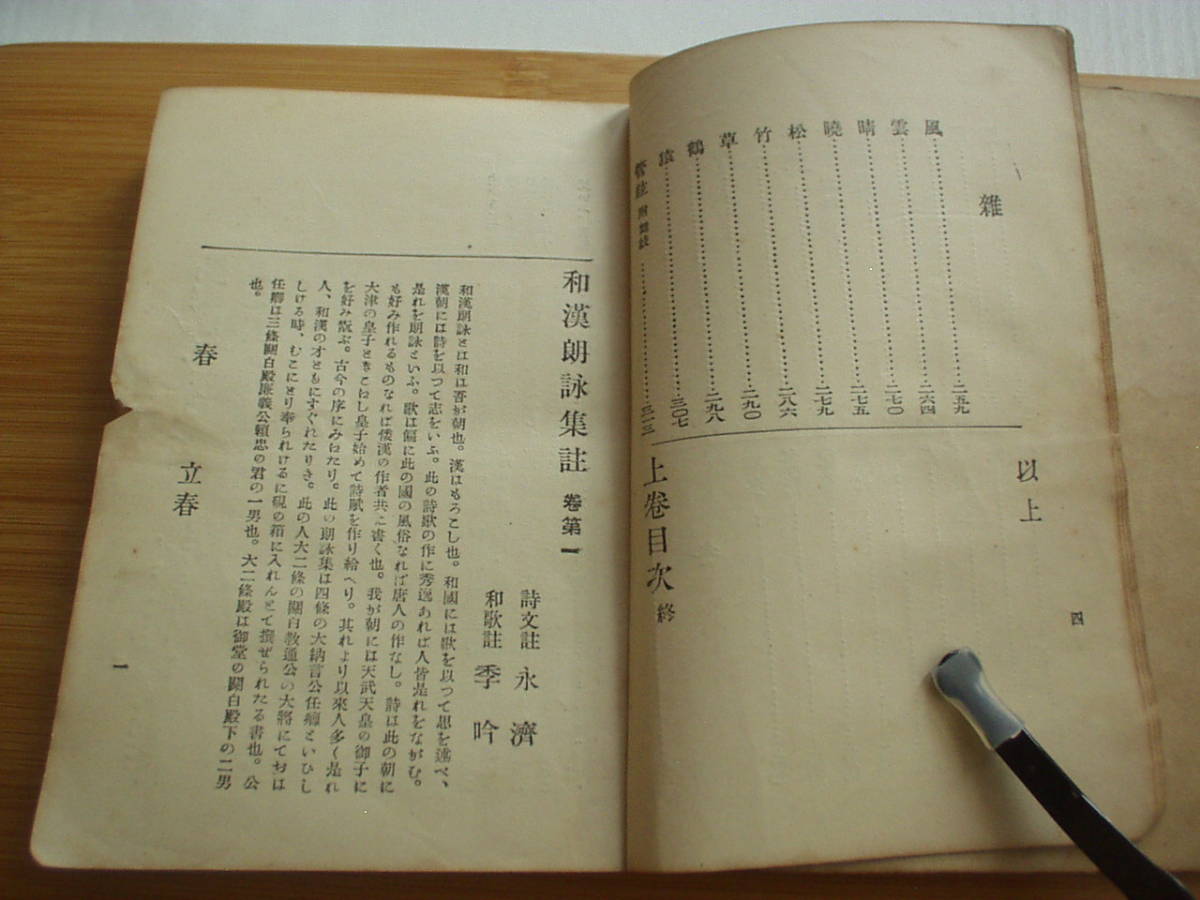 雜
風……二五九
雲……二六四
晴……二七〇
曉……二七五
松……二七九
竹……二八六
草……二九〇
鶴……二九八
猿……三〇七
管絃 附舞妓……三一三
以上
上卷目次 終
四
和漢朗詠集註 卷第一
詩文註 永濟
和歌註 季吟
和漢朗詠とは和は吾が朝也。漢はもろこし也。和國には歌を以つて思を述べ、
漢朝には詩を以つて志をいふ。此の詩歌の作に秀逸あれば人皆是れをながむ。
是れを朗詠といふ。歌は偏に此の國の風俗なれば唐人の作なし。詩は此の朝に
も好み作れるものなれば倭漢の作者共に書く也。我が朝には天武天皇の御子に
大津の皇子ときこねし皇子始めて詩賦を作り給へり。其れより以來人多く是れ
を好み翫ぶ。古今の序にみねたり。此の朗詠集は四條の大納言公任卿といひし
人、和漢の才ともにすぐれたりき。此の人大二條の關白教通公の大將にておは
しける時、むこにとり奉られけるに硯の箱に入れんとて撰ぜられたる書也。公
任卿は三條關白殿廉義公賴忠の君の一男也。大二條殿は御堂の關白殿下の二男
也。
春
立春
一